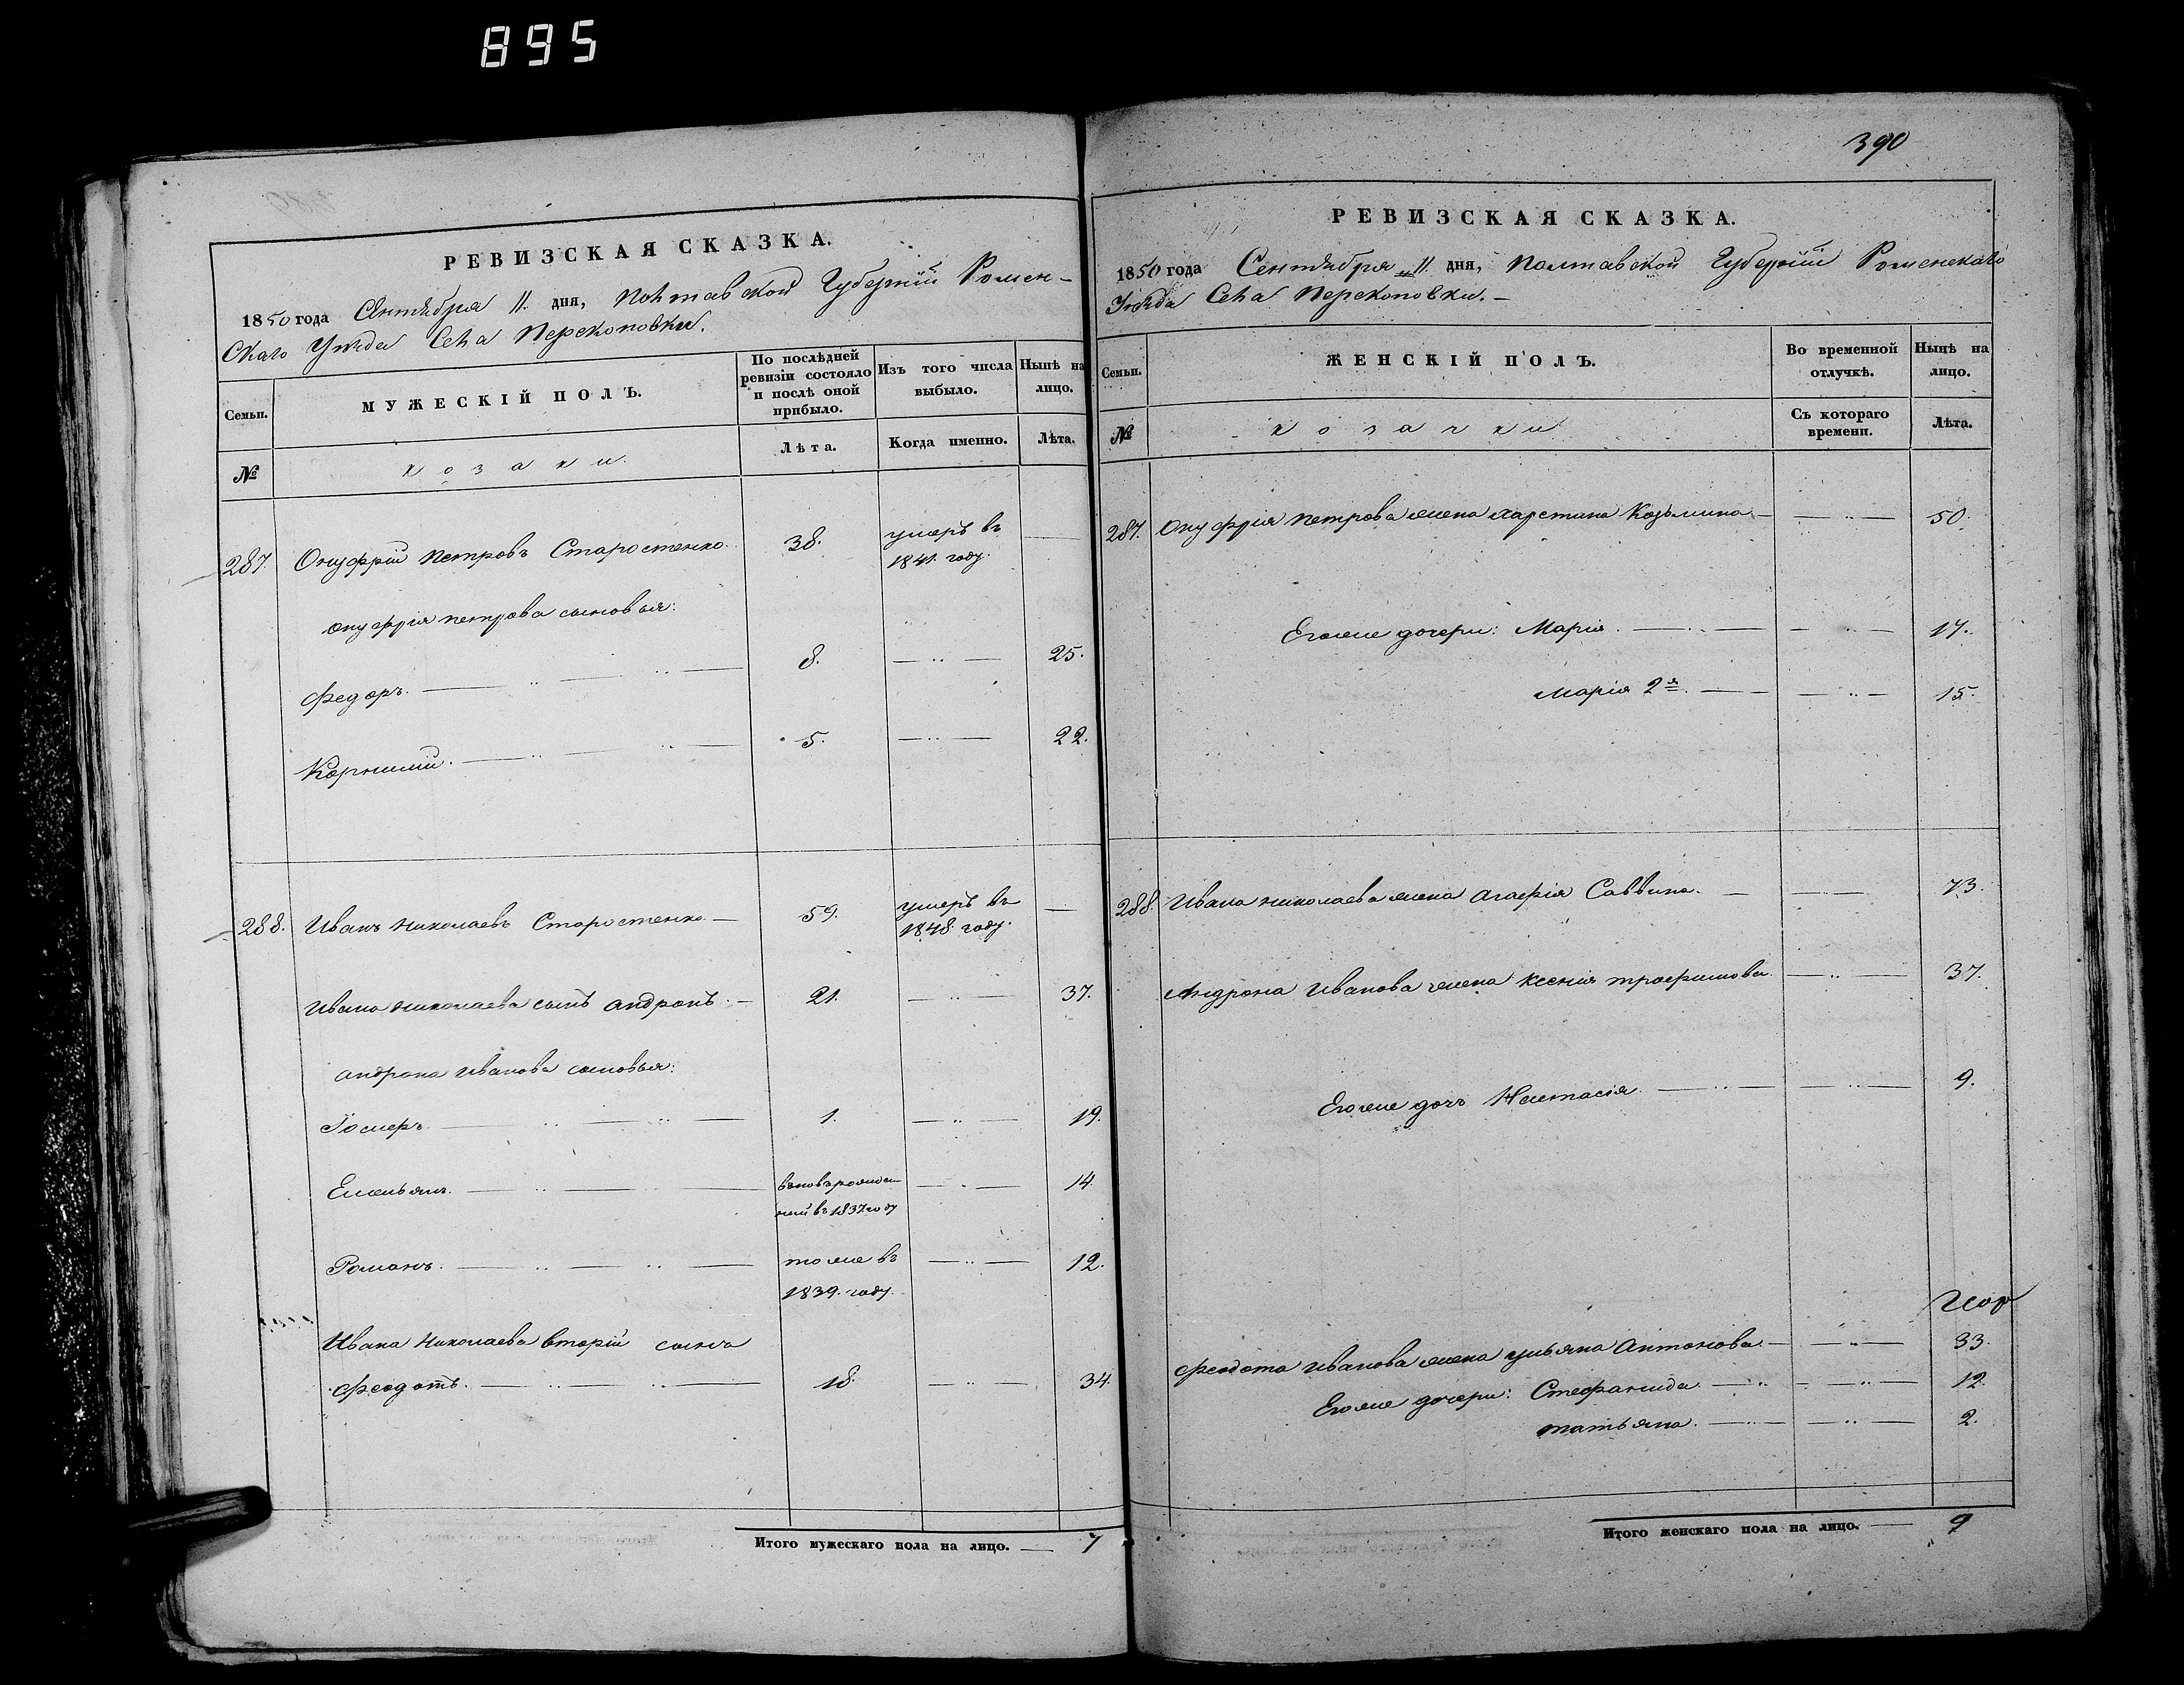 895
РЕВИЗСКАЯ СКАЗКА.
1850 года Сентября 11. дня, Полтавской Губерніи Ромен-
скаго Уѣзда Села Перекоповки.
Семьи.
МУЖЕСКІЙ ПОЛЪ.
По послѣдней ревизіи состояло и послѣ оной прибыло.
Изъ того числа выбыло.
Нынѣ на лицо.
№
козаки.
Лѣта.
Когда именно.
Лѣта.
287. Онуфрій Петровъ Старостенко 38. умеръ въ
1841. году.
Онуфрія Петрова сыновья:
Федоръ. 8. 25.
Корнилій. 5. 22.
288. Иванъ Николаевъ Старостенко 59. умеръ въ
1848. году.
Ивана Николаева сынъ Андронъ 21. 37.
Андрона Иванова сыновья:
1. 19.
Емельянъ. вновьрожден
ный въ 1837 году 14.
Романъ. тоже въ 12.
1839. году.
Ивана Николаева вторій сынъ
Феодотъ. 18. 34.
Итого мужескаго пола на лицо. 7
390
РЕВИЗСКАЯ СКАЗКА.
1850 года Сентября 11. дня, Полтавской Губерніи Роменскаго
Уѣзда Села Перекоповки.
Семьи.
ЖЕНСКІЙ ПОЛЪ.
Во временной отлучкѣ.
Нынѣ на лицо.
№
козачки
Съ котораго времени.
Лѣта.
287. Онуфрія Петрова жена Харетина Козьмина 50.
Егоже дочери: Марія. 17.
Марія 2я. 15.
288. Ивана Николаева жена Агафія Саввина. 73.
Андрона Иванова жена Ксенія Трофимова. 37.
Егоже дочь Настасія 9.
Феодота Иванова жена Ульяна Антонова. 33.
Егоже дочери: Стефанида. 12.
Татьяна. 2.
Итого женскаго пола на лицо. 9